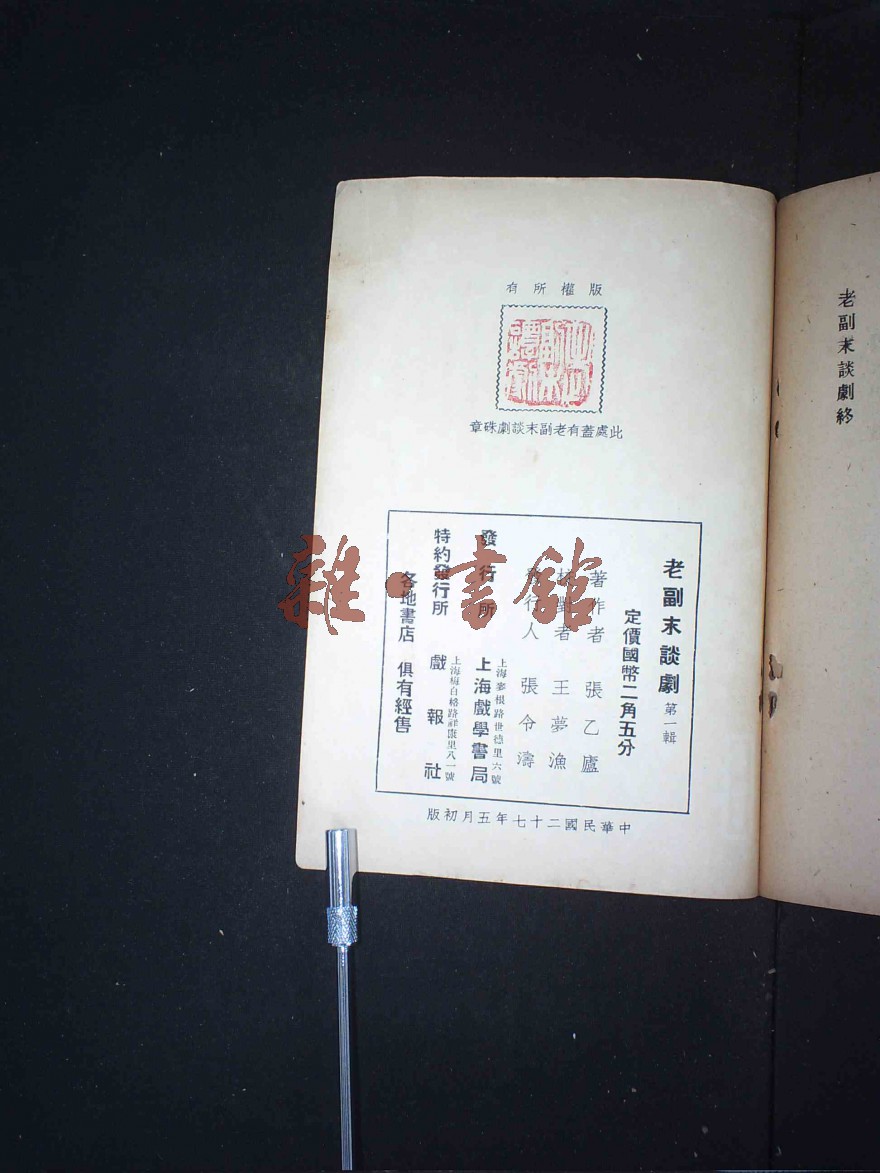 老副末談劇終
版權所有
老副末談劇
此處蓋有老副末談劇硃章
老副末談劇 第一輯
定價國幣二角五分
著作者 張乙廬
校對者 王夢漁
發行人 張令濤
上海麥根路世德里六號
發行所 上海戲學書局
上海梅白格路祥康里八一號
特約發行所 戲報社
各地書店 俱有經售
中華民國二十七年五月初版
雜·書館